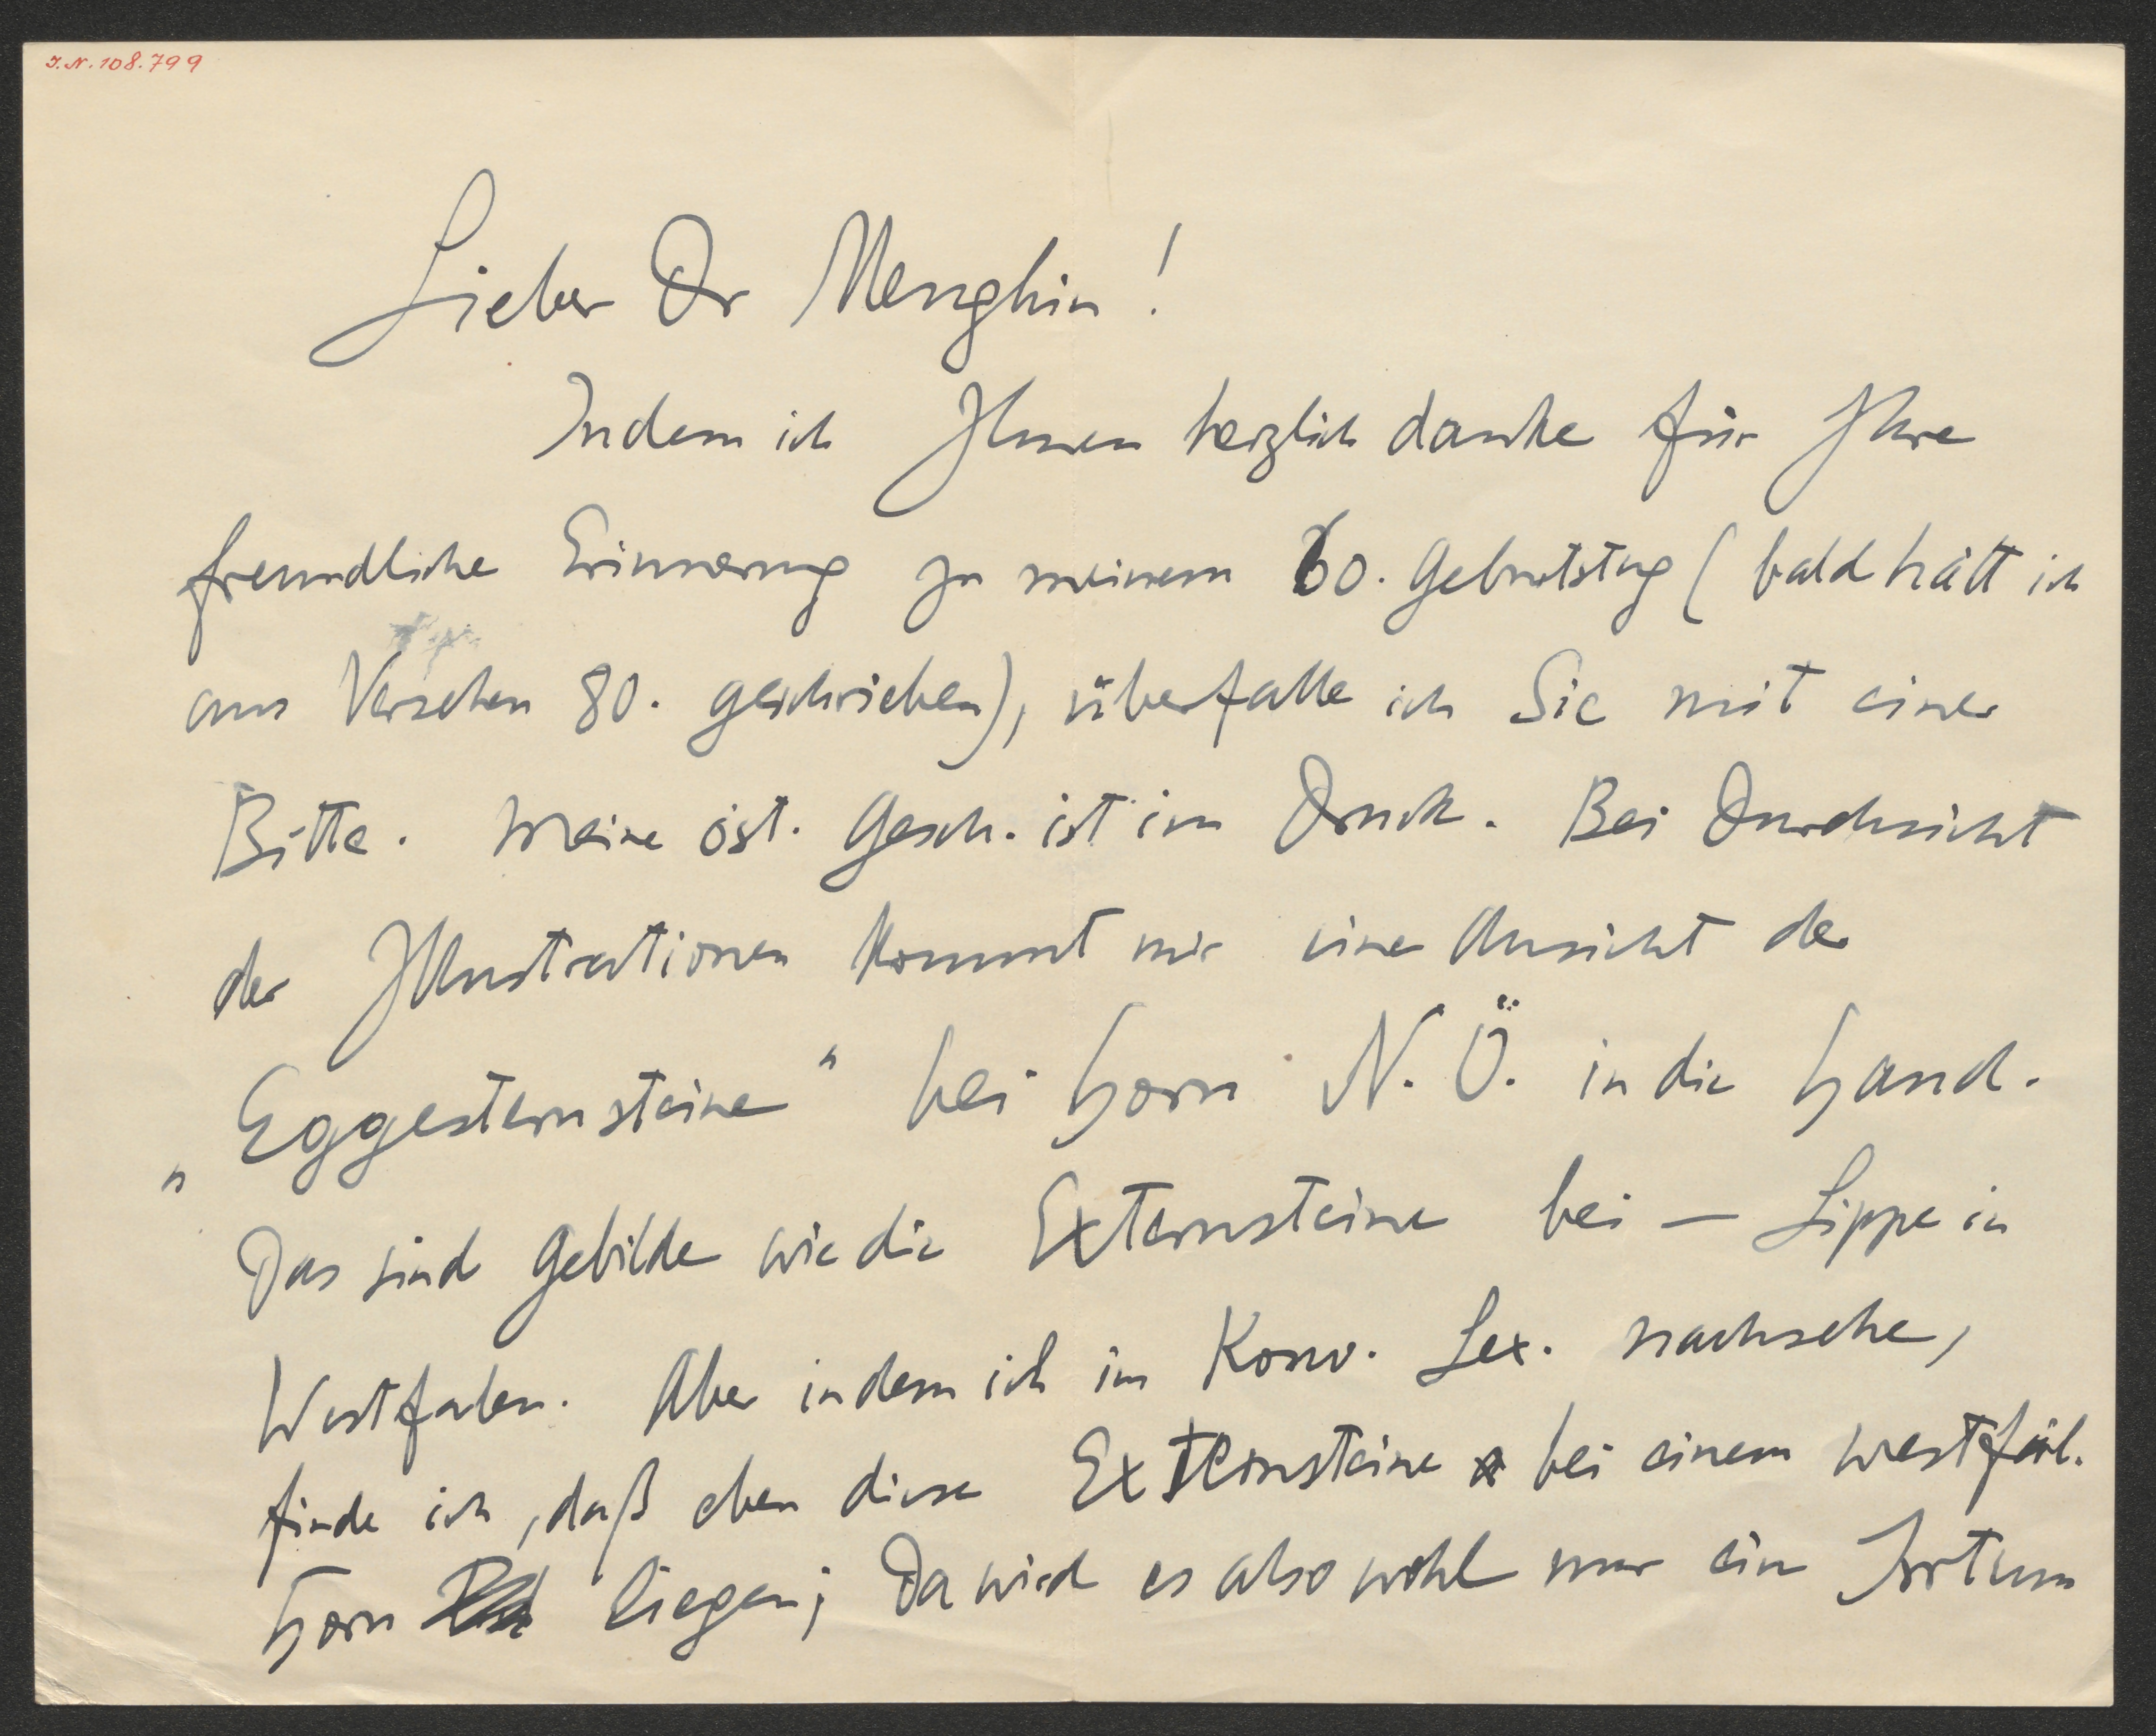 J.N.108.799
Lieber Dr Menghin!
Indem ich Ihnen herzlich danke für Ihre
freundliche Erinnerung zu meinem 60. Geburtstag (bald hätt ich
aus Versehen 80. geschrieben), überfalle ich Sie mit einer
Bitte. Meine öst. Gesch. ist im Druck. Bei Durchsicht
der Illustrationen kommt mir eine Ansicht der
„Eggesternsteine“ bei Horn N.Ö. in die Hand.
Das sind Gebilde wie die Externsteine bei — Lippe in
Westfalen. Aber indem ich im Konv. Lex. nachsehe,
finde ich, daß eben diese Externsteine bei einem westfäl.
Horn liegen; Da wird es also wohl nur ein Irrtum